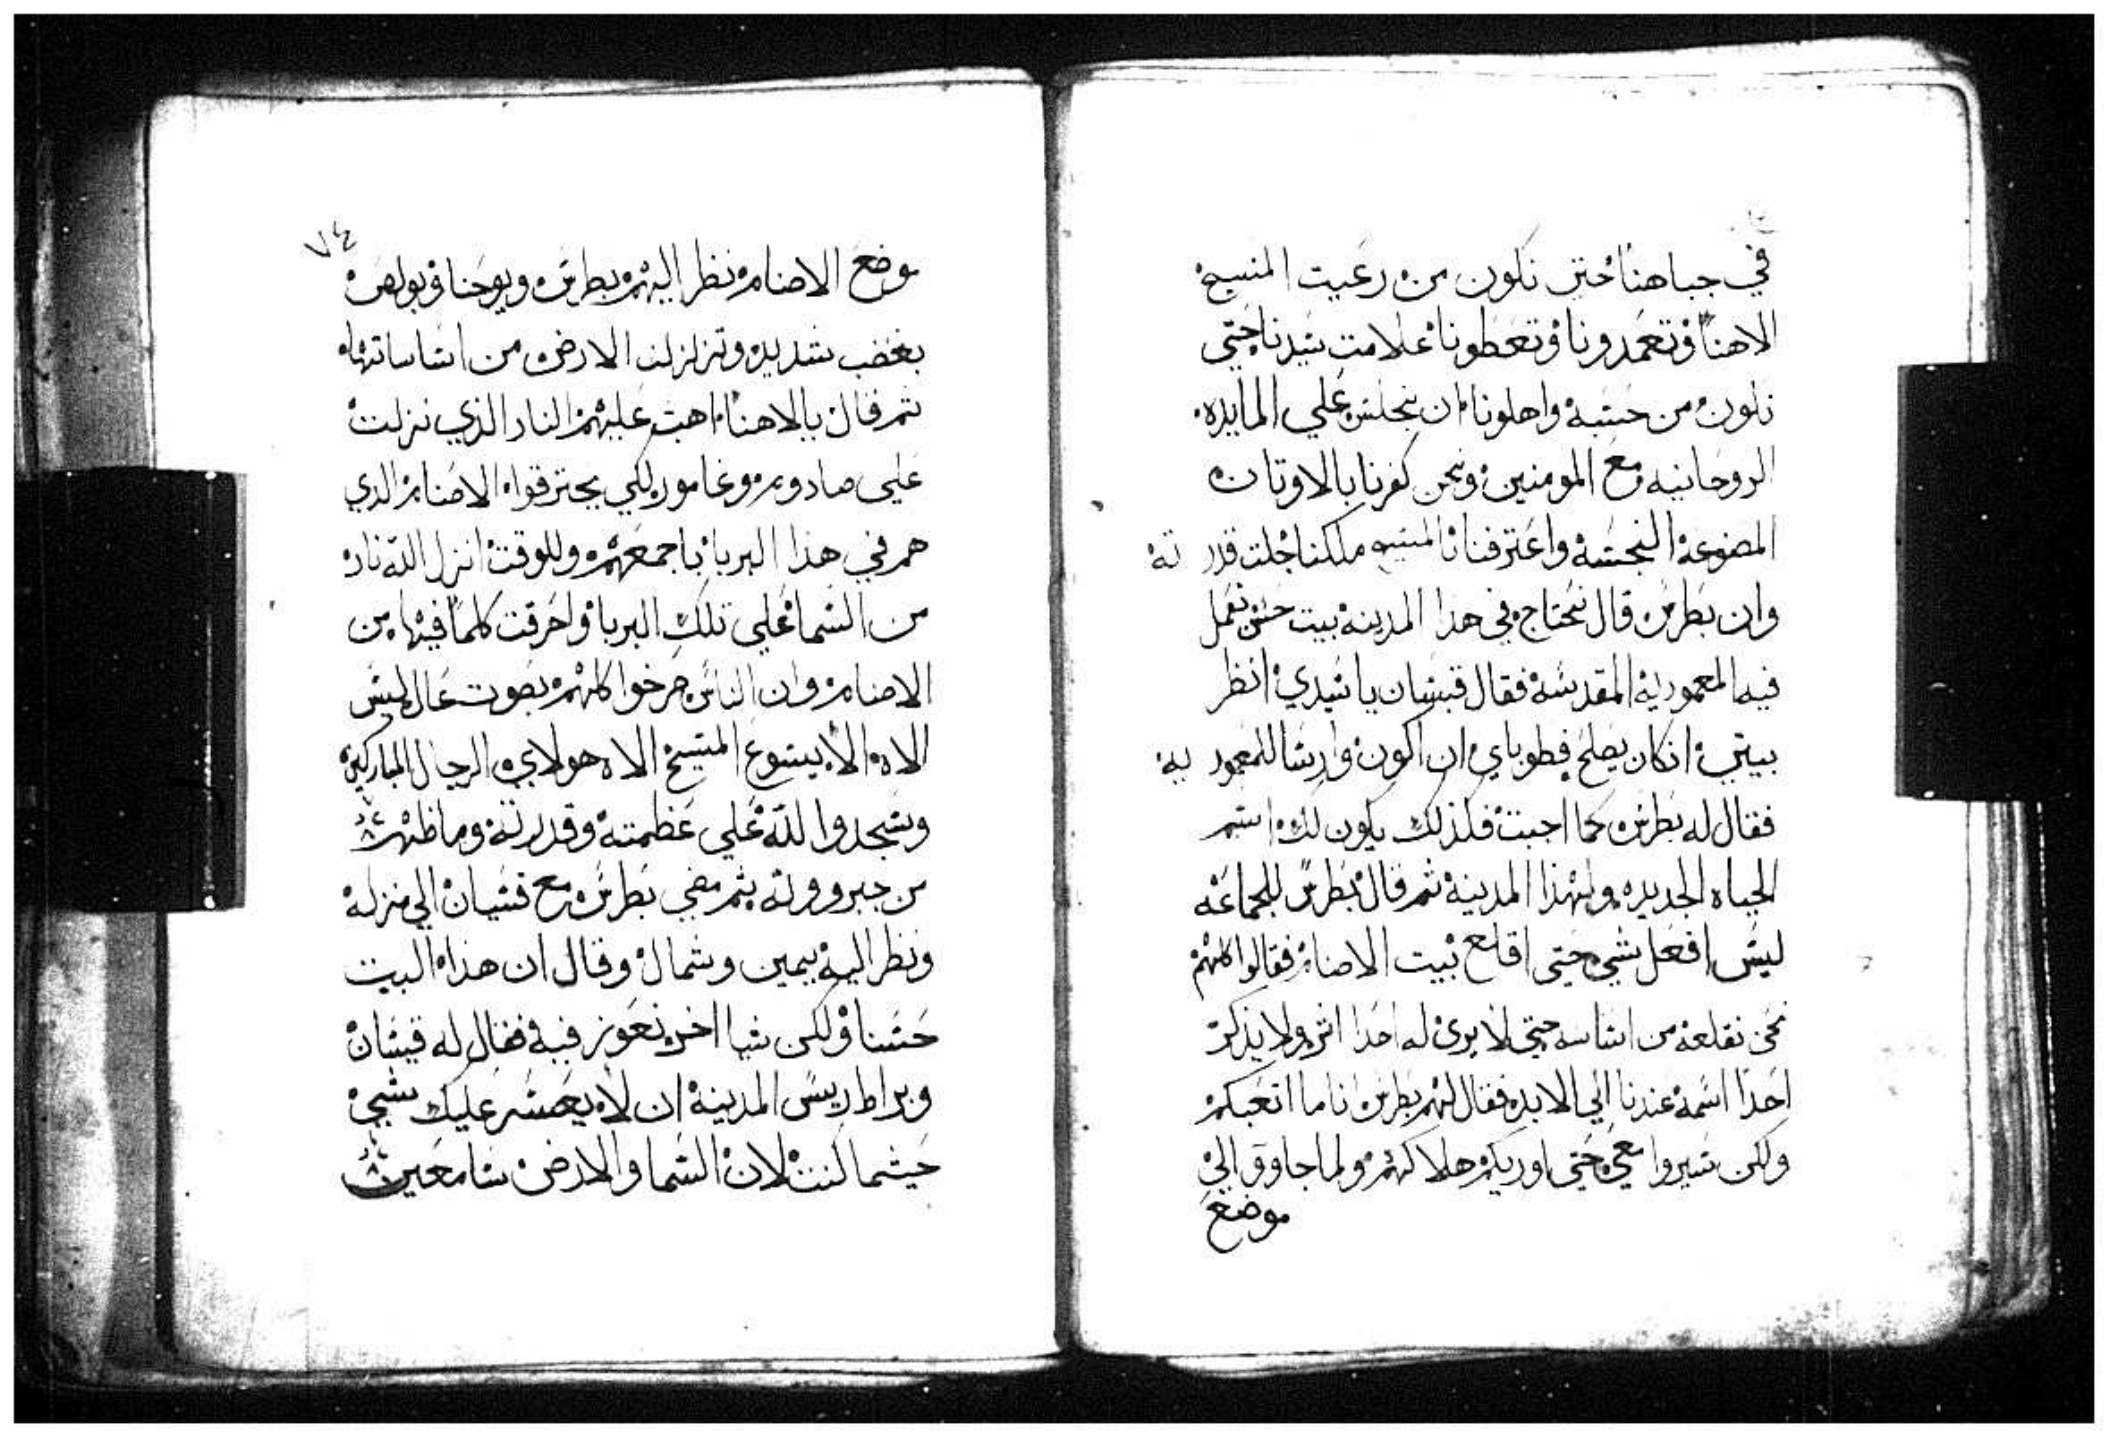 في جباهنا حتى نكون من رعيت المسيح
الاهنا وتعمدونا وتعطونا علامت سيدنا حتى
نكون من حسبه واهلونا ان نجلس علي المايده
الروحانيه مع المومنين ونحن كفرنا بالاوتان
المصنوعة النجسة واعترفنا بالمسيح ملكنا جلت قدرته
وان بطرس قال نحتاج في هذا المدينه بيت حسن نعمل
فيه المعموديه المقدسة فقال قيسان يا سيدي انظر
بيتي ان كان يصلح فطوباي ان اكون وارثا للمعموديه
فقال له بطرس كما اجبت فلذلك يكون لك اسم
الحياه الجديده ولهذا المدينة ثم قال بطرس للجماعه
ليس افعل شي حتى اقلع بيت الاصنام فقالوا كلهم
نحن نقلعه من اساسه حتى لا يرى له احدا اثر ولا يذكر
احدا اسمه عندنا الي الابد فقال لهم بطرس انا ما اتعبكم
ولكن سيروا معي حتى اوريكم هلاكهم ولما جاوو الي
موضع
٧٤
موضع الاصنام نظر اليهم بطرس ويوحنا وبولص
بغضب شديد وتزلزلت الارض من اساساتها
ثم قال يا الاهنا اهبت عليهم النار الذي نزلت
على صادوم وغاموره لكي يحترقوا الاصنام الذي
هم في هذا البربا باجمعهم وللوقت انزل الله نار
من السما علي تلك البربا واحرقت كلما فيها من
الاصنام وان الناس صرخوا كلهم بصوت عال ليس
الاه الا يسوع المسيح الاه هولاي الرجال المباركين
وسجدوا لله علي عظمته وقدرته وما ظهر
من جبرووته ثم مضي بطرس مع قسيان الي منزله
ونظر اليه يمين وشمال وقال ان هذا البيت
حسنا ولكن شيا اخر نعوز فيه فقال له قيسان
وبراط ريس المدينة ان لا يعسر عليك شي
حيثما كنت لان السما والارض سامعين